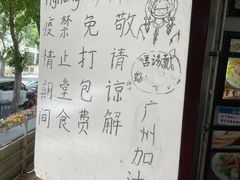 疫情期间
禁止堂食
免打包费
敬请谅解
广州加油